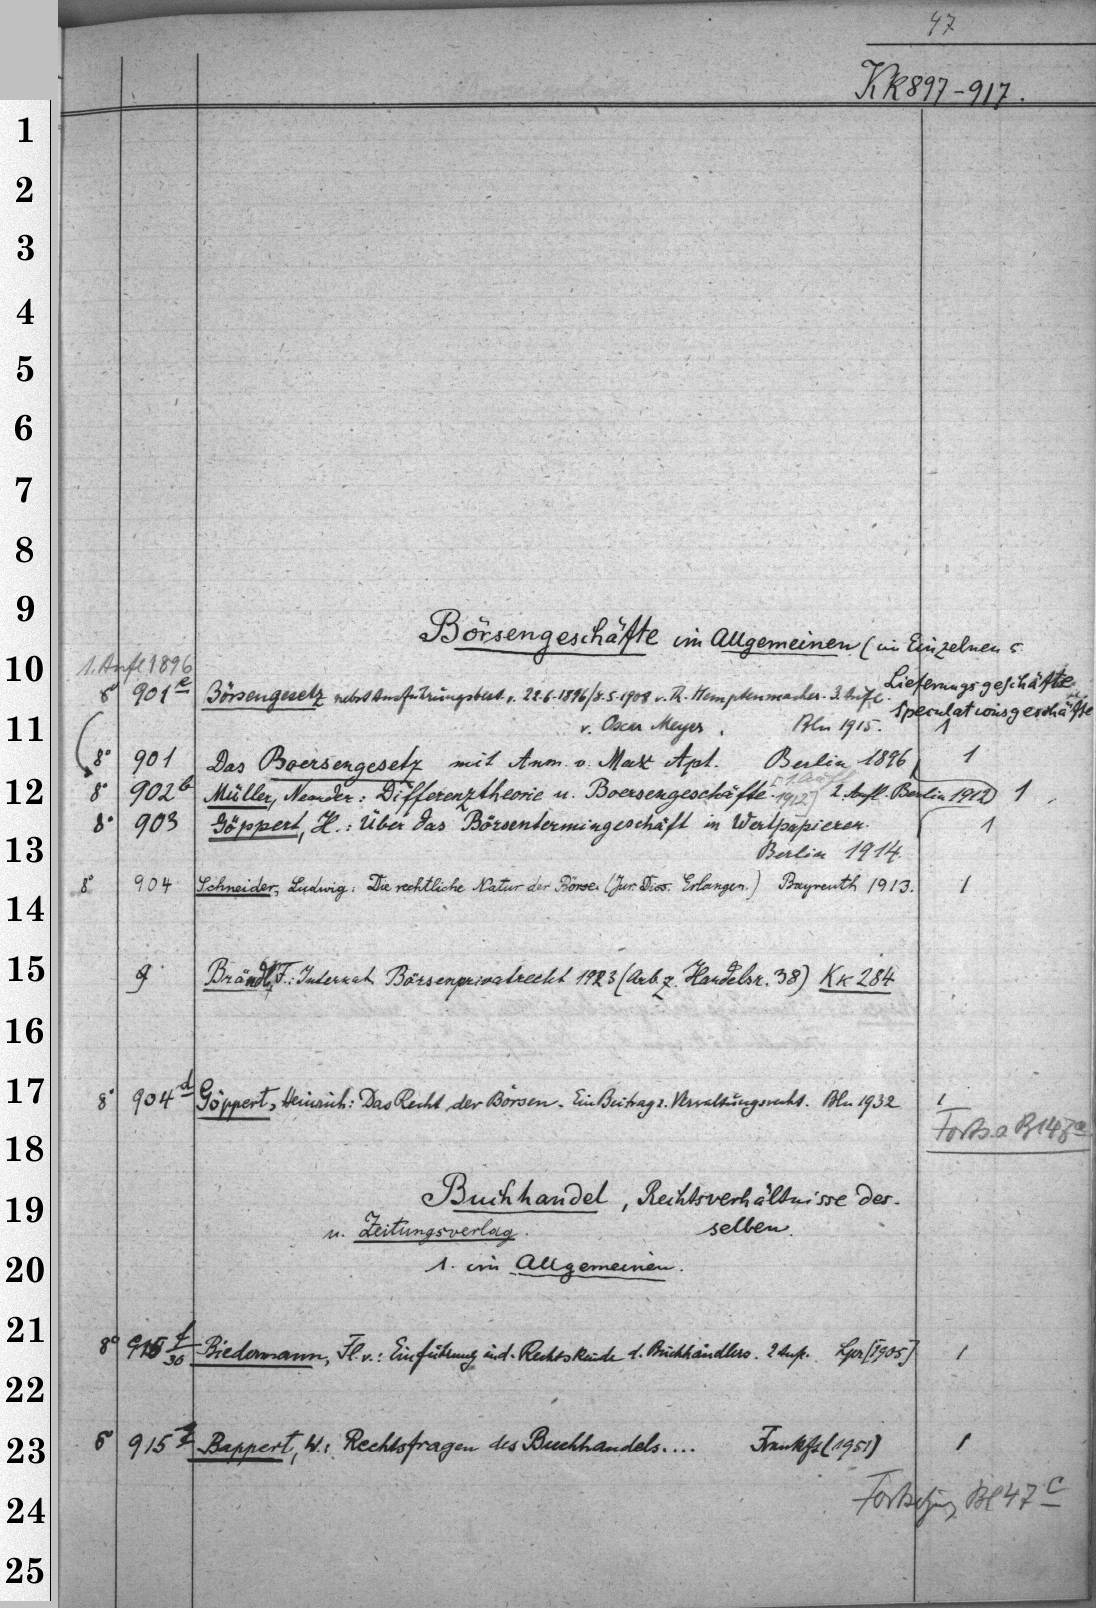 47
Kk 897-917.
1
2
3
4
5
6
7
8
9
Börsengeschäfte im Allgemeinen (im Einzelnen s.
10 1. Aufl 1896
Lieferungsgeschäfte
8° 901e Börsengesetz nebst Ausführungsbest. v. 22.6.1896/8.5.1908 v. Th. Hemptenmacher. 3. Aufl.
Speculationsgeschäfte
11 v. Oscar Meyer. Bln 1915. 1
8° 901 Das Boersengesetz mit Anm. v. Max Apt. Berlin 1896 1
[1. Aufl.
12 8° 902b Müller, Neander: Differenztheorie u. Boersengeschäfte 1912] 2. Aufl. Berlin 1912) 1
8° 903 Göppert, H.: Über das Börsentermingeschäft in Wertpapieren. 1
13 Berlin 1914.
8° 904 Schneider, Ludwig: Die rechtliche Natur der Börse. (Jur. Diss. Erlangen.) Bayreuth 1913. 1
14
15 Brändl, F.: Internat. Börsenprivatrecht 1923 (Arb. z. Handelsr. 38) Kk 284
16
17 8° 904d Göppert, Heinrich: Das Recht der Börsen. Ein Beitrag z. Verwaltungsrecht. Bln 1932 1
Forts. a Bl 48a
18
19 Buchhandel, Rechtsverhältnisse des-
u. Zeitungsverlag. selben.
20 1. im Allgemeinen.
21 8° 915 f/30 Biedermann, Fl. v.: Einführung in d. Rechtskunde d. Buchhändlers. 2 Aufl. Lpz [1905] 1
22
23 8° 915 Bappert, W.: Rechtsfragen des Buchhandels.... Frankft (1951) 1
24 Fortsetzung Bl 47c
25